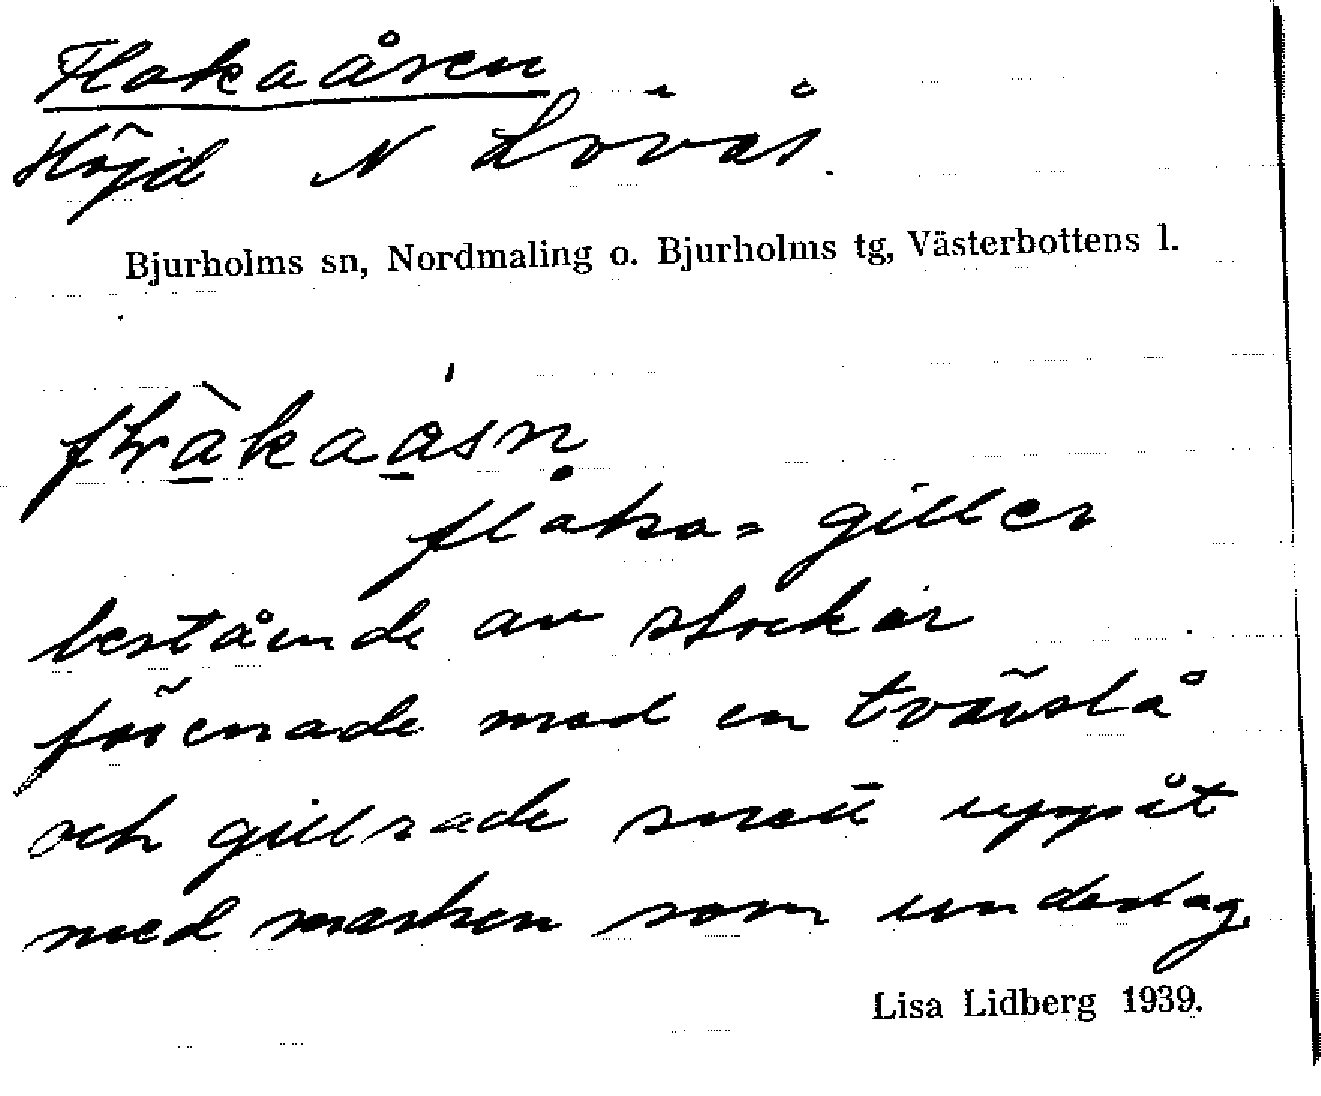 Flakaåsen
Höjd N Lövås.
Bjurholms sn, Nordmaling o. Bjurholms tg, Västerbottens l.
flåka- giller
bestående av stockar
förenade med en tvärslå
och gillrade snett uppåt
med marken som underlag
Lisa Lidberg 1939.